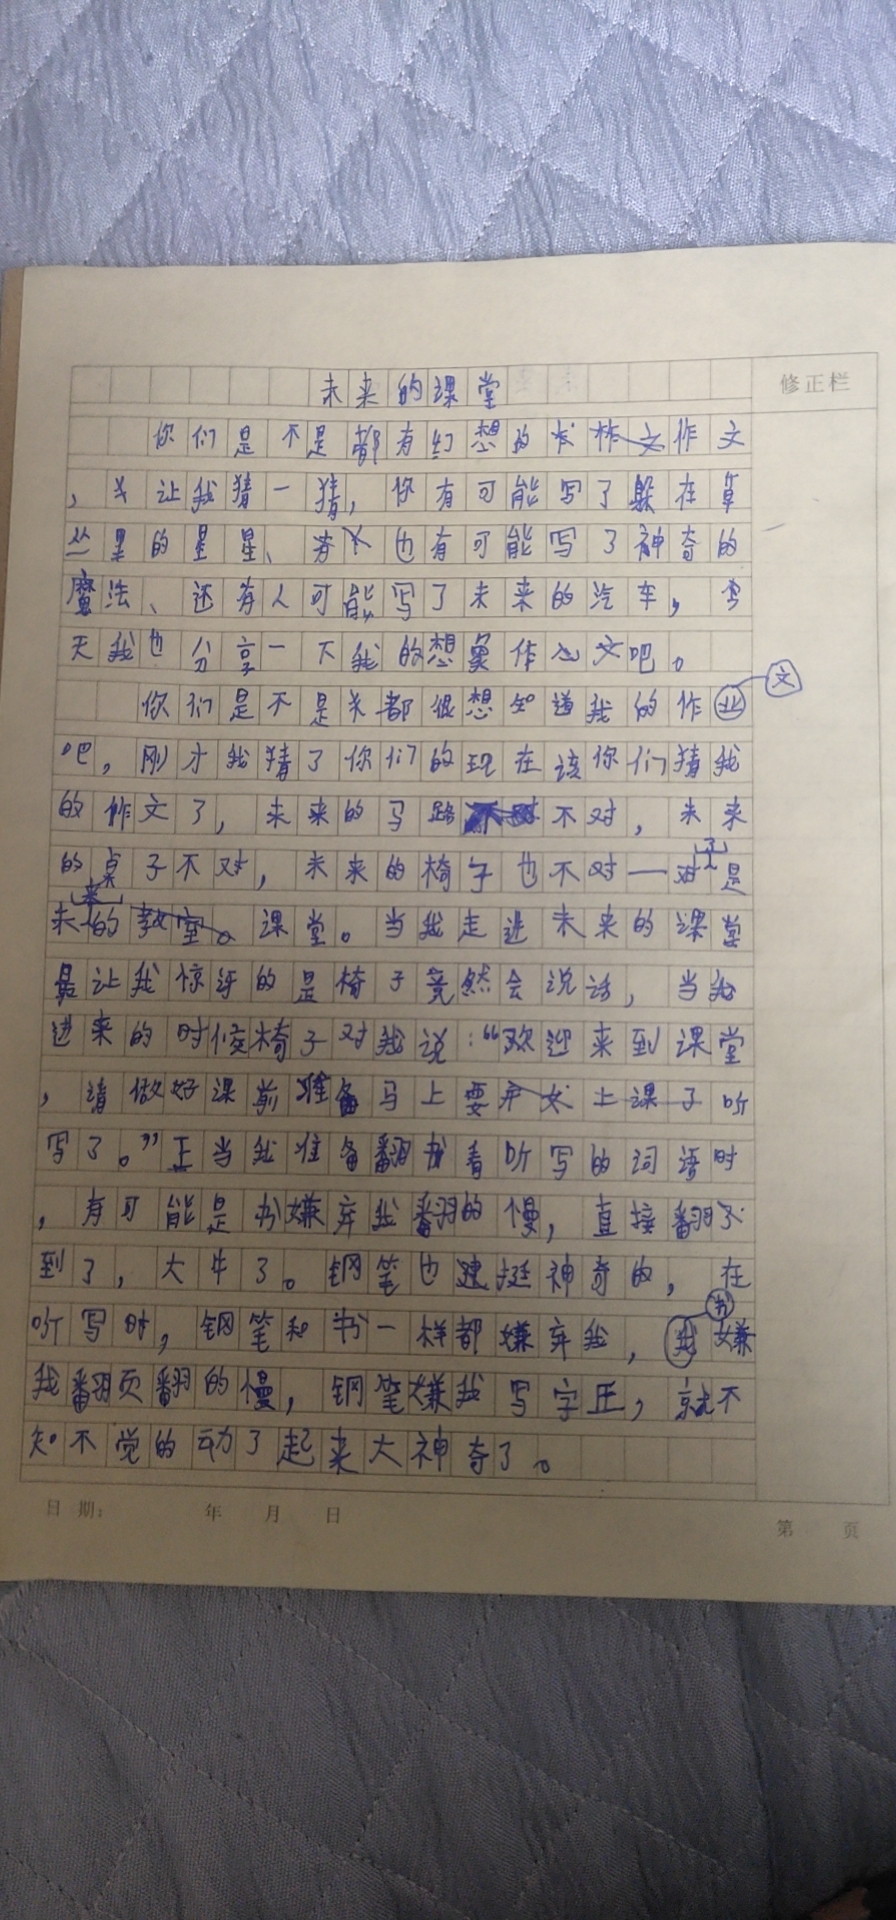 修正栏
未来的课堂
你们是不是都有幻想的作文
，让我猜一猜，你有可能写了躲在草
丛里的星星、也有可能写了神奇的
魔法、还有人可能写了未来的汽车，今
天我也分享一下我的想象作文吧。
你们是不是都很想知道我的作文
吧，刚才我猜了你们的现在该你们猜我
的作文了，未来的马路不对，未来
的桌子不对，未来的椅子也不对一对了是
未来的课堂。当我走进未来的课堂
最让我惊讶的是椅子竟然会说话，当我
进来的时候椅子对我说：“欢迎来到课堂
，请做好课前准备马上要听
写了。”正当我准备翻书看听写的词语时
，有可能是书嫌弃我翻的慢，直接翻
到了，大牛了。钢笔也挺神奇的，在
听写时，钢笔和书一样都嫌弃我，书嫌
我翻页翻的慢，钢笔嫌我写字正，就不
知不觉的动了起来大神奇了。
日期： 年 月 日
第 页